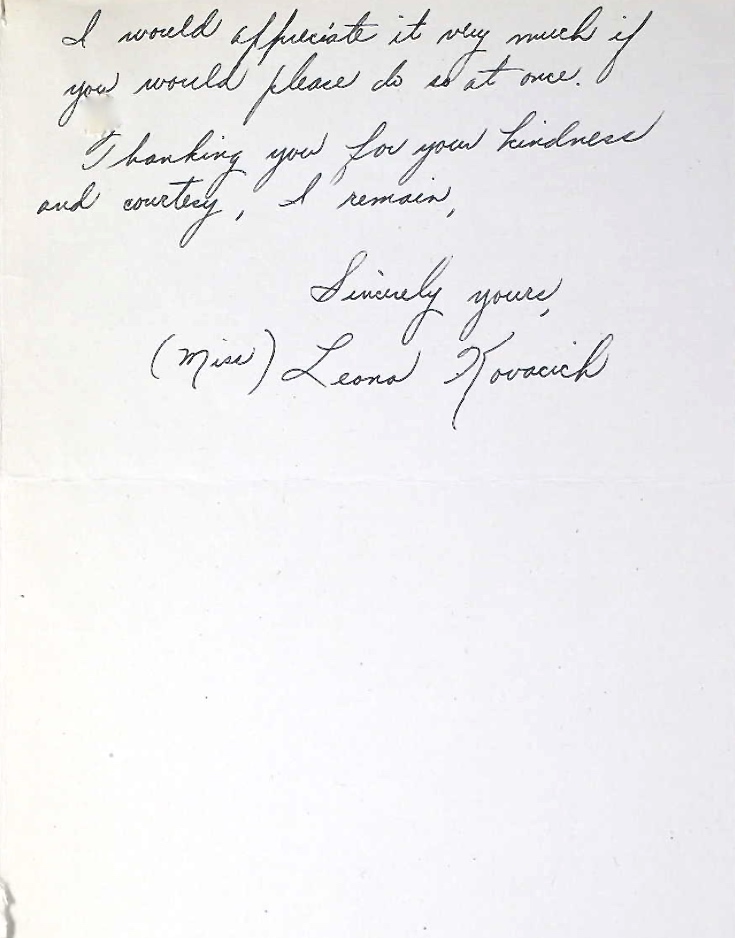 I would appreciate it very much if
you would please do so at once.
Thanking you for your kindness
and courtesy, I remain,
Sincerely yours,
(Miss) Leona Kovacich